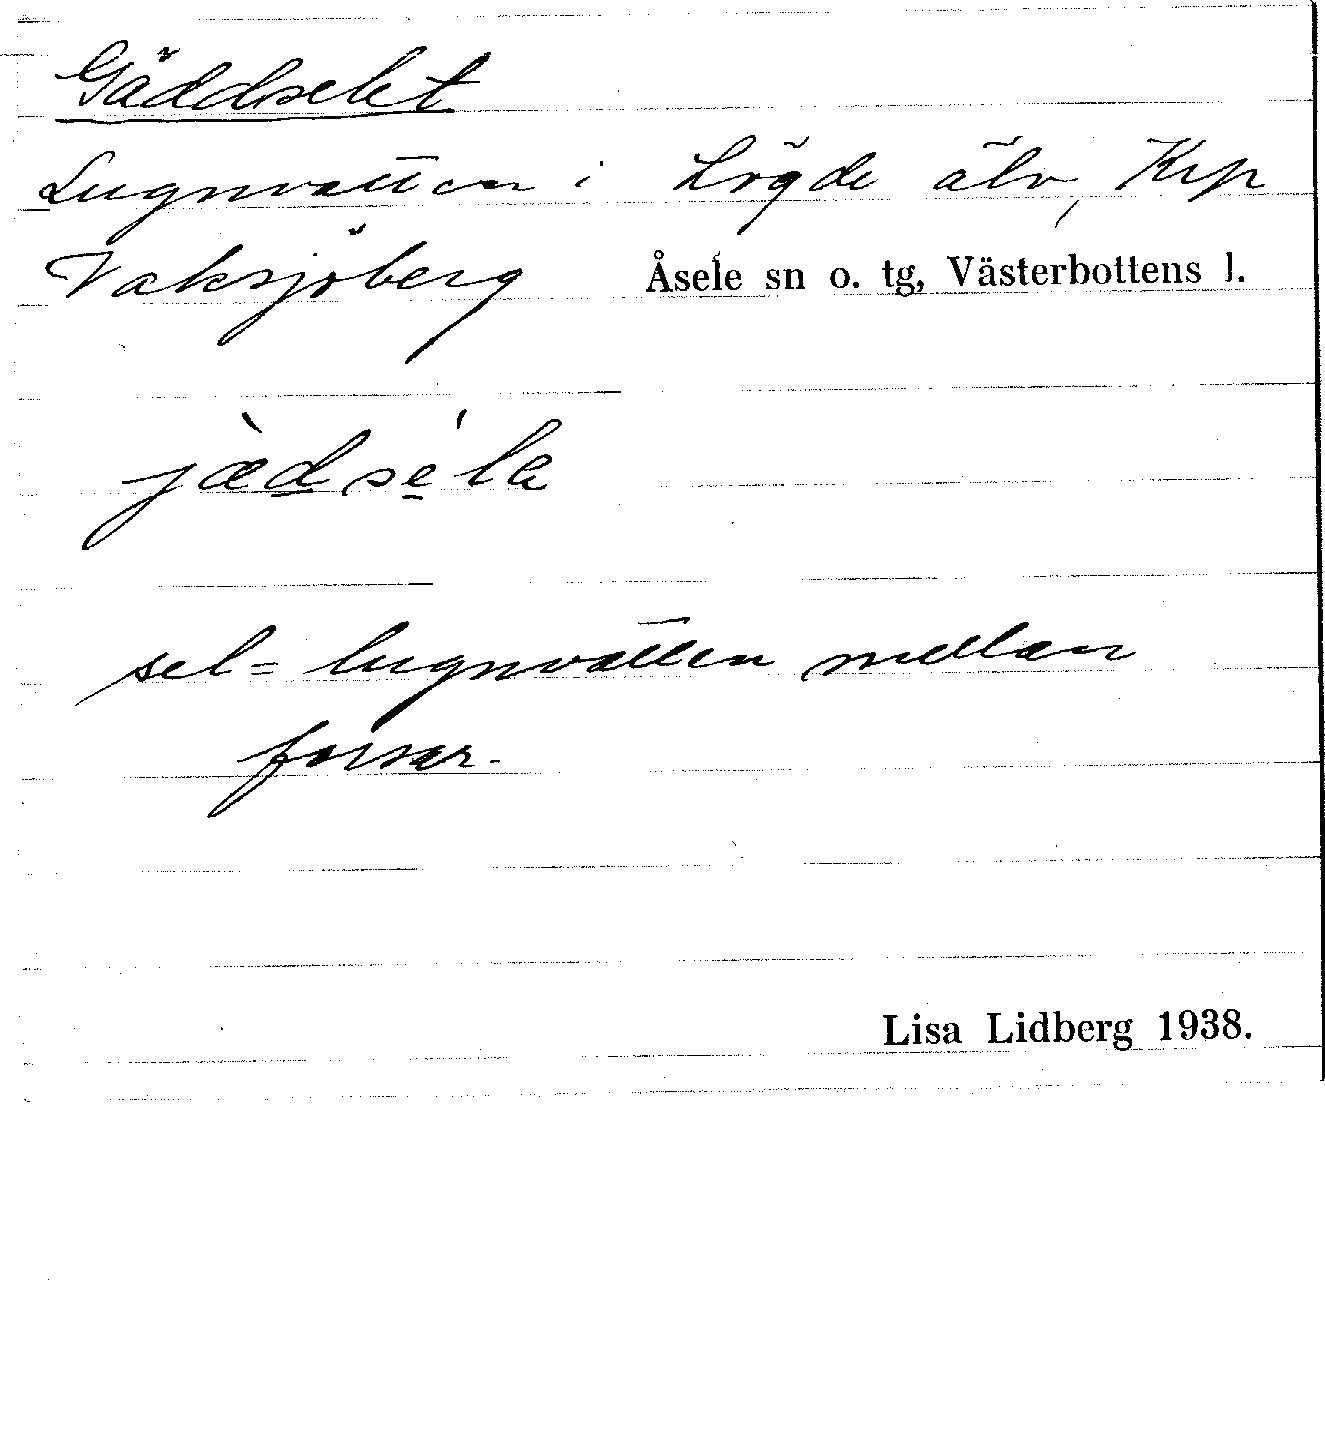 Gäddselet
Lugnvatten i Lögde älv, Krp
Vaksjöberg Åsele sn o. tg, Västerbottens l.
jæ̀dse̠ ́la
sel = lugnvatten mellan
forsar.
Lisa Lidberg 1938.